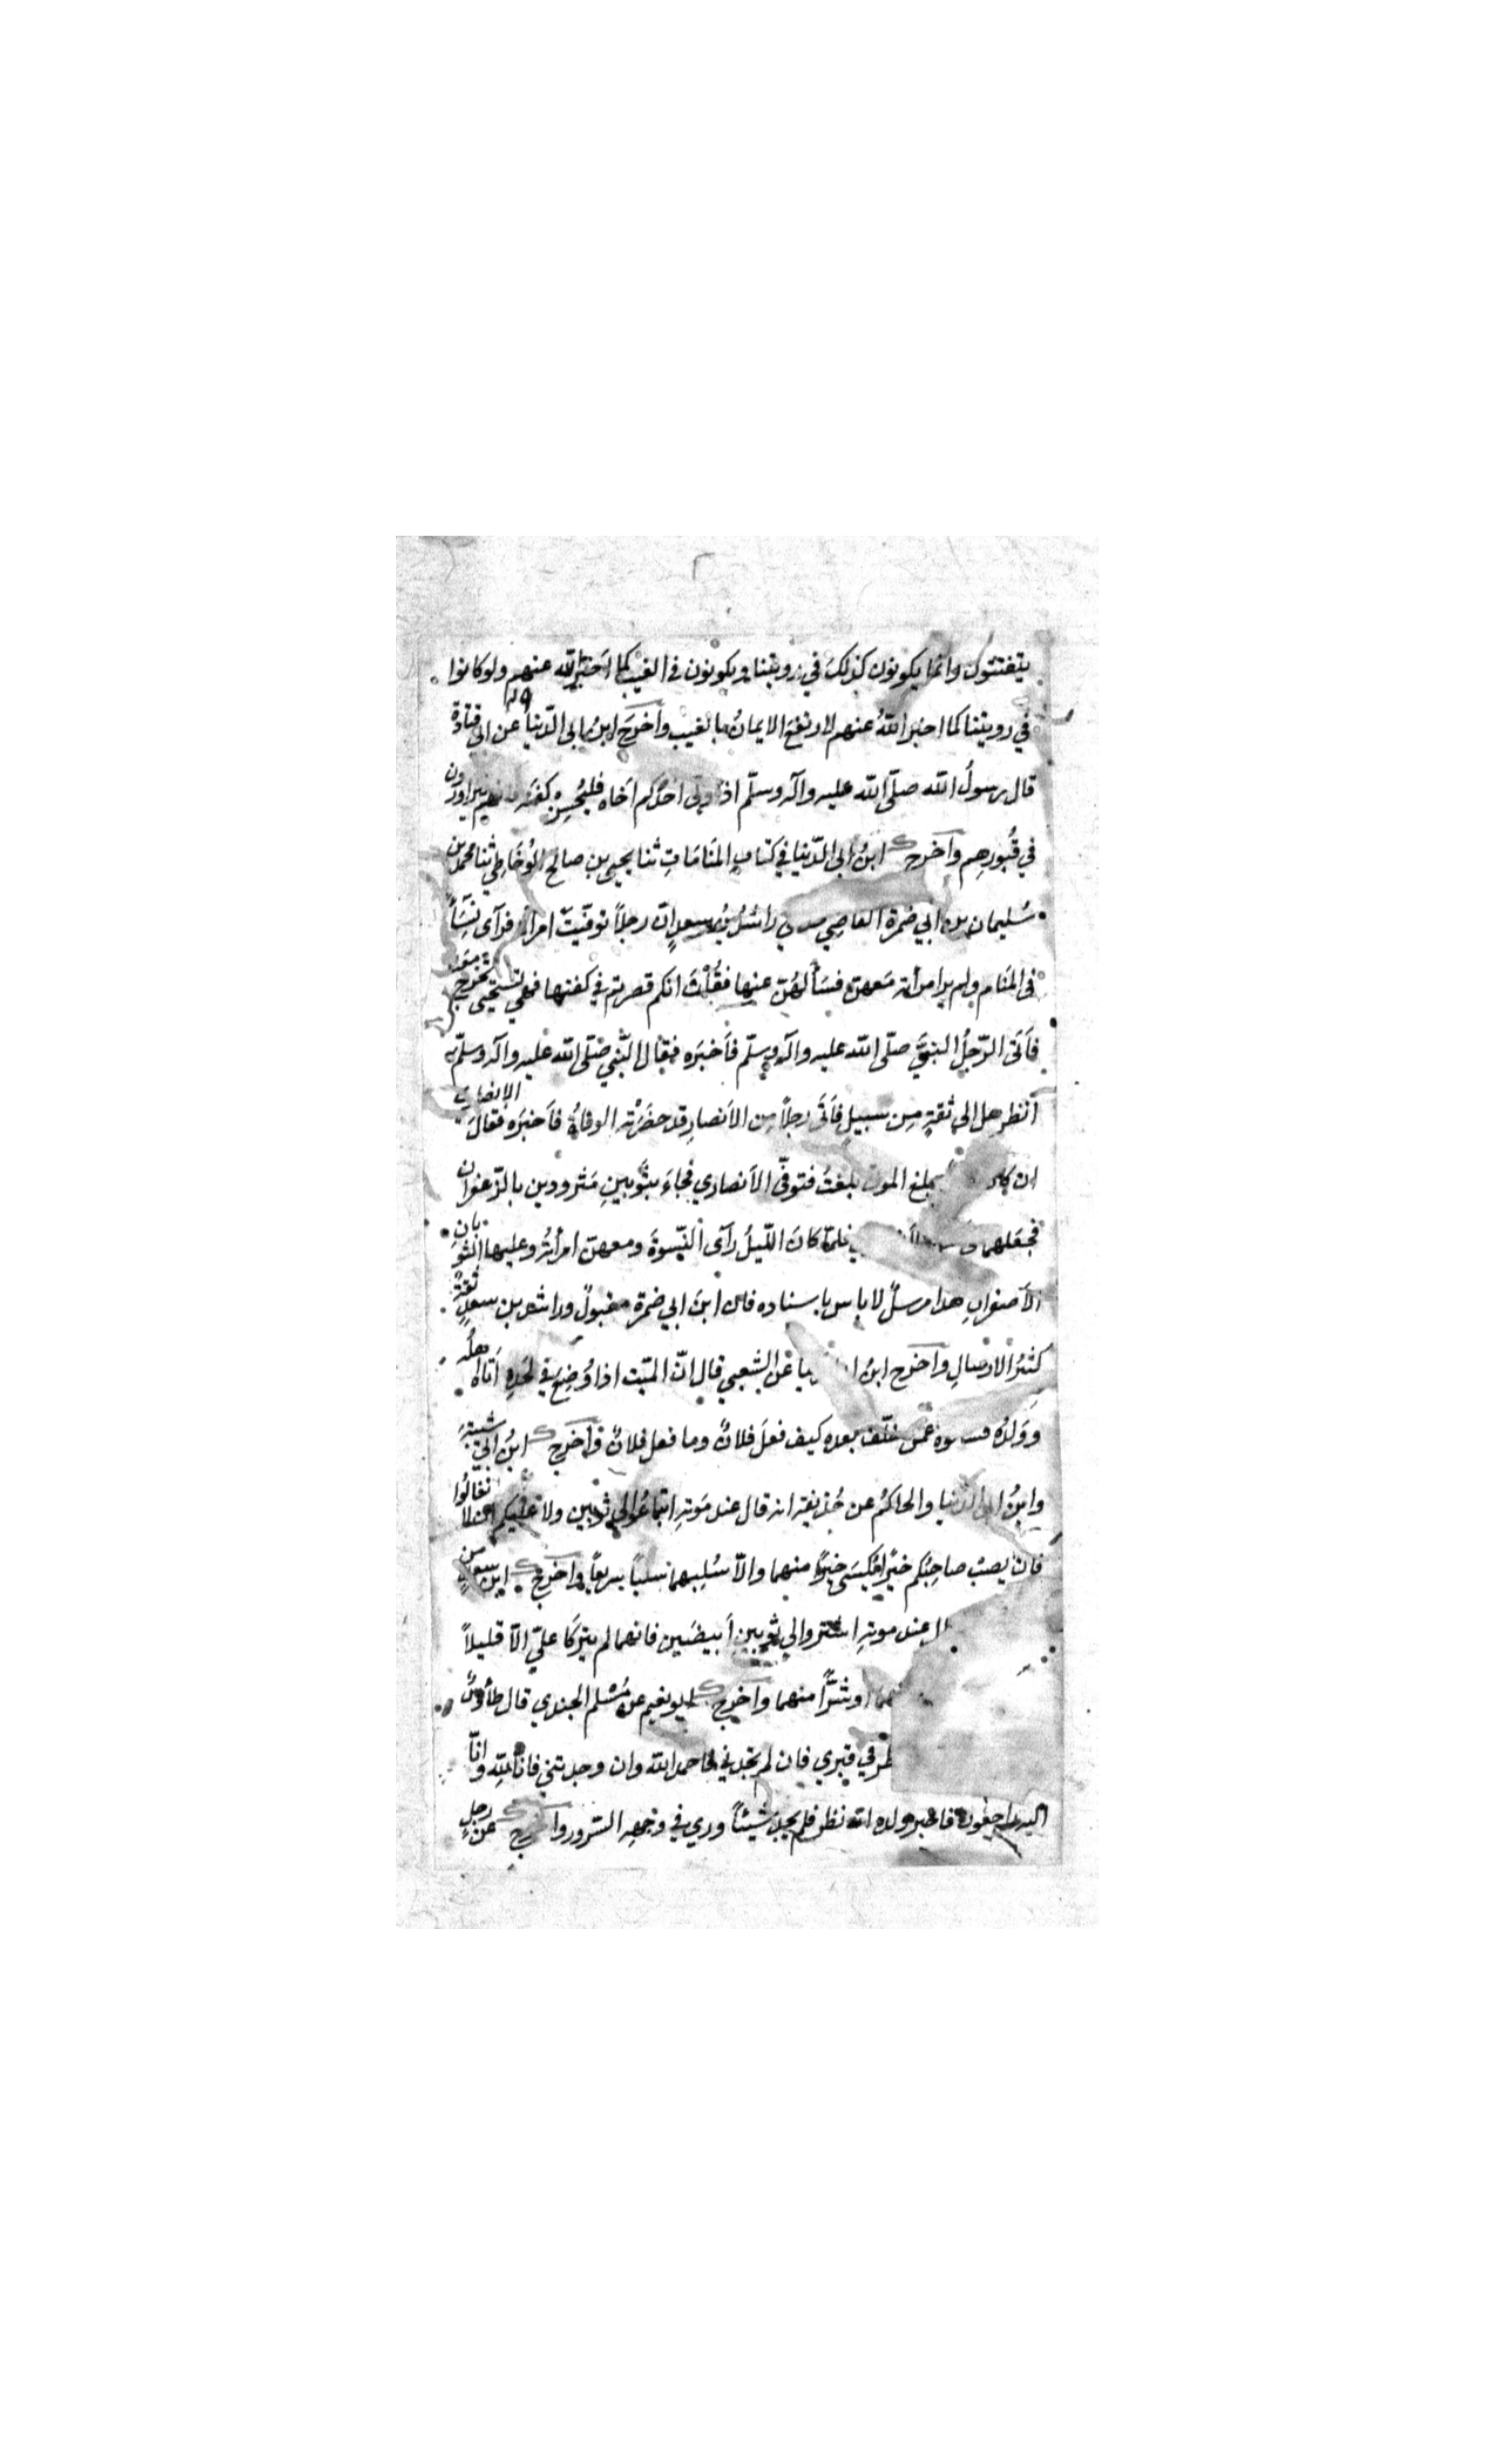 يتفتتون وانما يكونون كذلك في رويتنا ويكونون في الغيب كما اَخبر الله عنهم ولو كانوا
في رويتنا كما اخبر اللهُ عنهم لارتفع الايمانُ بالغيب وَاَخرجَ ابنُ ابى الدّنيا عن ابى قتادة قال
قال رسولُ الله صلّى الله عليه وآله وسلّم اذا ولى احدُكم اَخاه فليُحسِن كفنَه فانهم يتزاورون
في قُبورِهِم وَاَخرج ابنُ ابى الدّنيا في كتابِ المَنامَاتِ ثنا يحيى بن صالح الوُحَاظِي ثنا محمد بن
سُليمان بن ابي ضمرة القاصي راشدُ بنُ سعدٍ انّ رجلاً توفّيتْ امراَته فرآى نِسَآءً
فى المَنام ولم ير امرأته مَعهن فسَألهُنّ عنها فقُلْنَ انكم قصرتم في كفنها فهي تستحيى تخرج معنا
فَاَتَى الرّجلُ النبيَّ صلّى الله عليه وآله وسلّم فَاَخبَره فقال النَّبي صَلّى الله عليه وآله وسلّم
اُنظر هل الى ثقةٍ مِن سبيلٍ فَاَتَى رجلاً مِن الاَنصارِ قد حضَرَتْه الوفاةُ فاَخبَره فقالَ الانصاري
ان كان يبلغ الموتى بلغتُ فتوفّى الاَنصاري فجاءَ بثَوبينِ مَثرودين بالزّعفران
فجعَلهما فلمّا كانَ اللّيلُ رآى النِّسوةَ ومعهنّ امرأتُه وعليها الثوبانِ
الاَصفرانِ هذا مرسلٌ لا باس باسناده فان ابنَ ابي ضمرة مقبولٌ وراشد بن سعدٍ ثقةٌ
كثيرُ الارسالِ وَاَخرج ابنُ ابى الدنيا عَن الشّعبي قال انّ الميّت اذا وُضِعَ في لَحدِهِ اَتاه اهلُه
وَوَلدُه عمّن خلّف بعده كيف فعلَ فلانٌ وما فعل فلانٌ وَاَخرج ابنُ ابى شيبةَ
وابنُ ابى الدّنيا والحاكمُ عن حُذيفة انه قال عند مَوتِهِ ابتاعُوا لي ثوبين ولا عليكم ان لا تغالُوا
فان يصبْ صاحبُكم خيرًا يُكسَى خيرًا منهما والاّ سُلِبهما سلبًا سريعًا وَاَخرج ابن سعدٍ عن
عند موتِهِ اشتروا لي ثوبينِ اَبيضَين فانهما لم يترَكا عليّ الاّ قليلاً
او شرًّا منهما وَاَخرج ابو نعيم عن مُسْلم الجندي قال طاُووسٌ
في قبري فان لم تجدني فاحمد الله وان وجدتني فانّا لِلّه وانّا
اليه راجعُون فاخبر ولده انه نظر فلم يجد شيئاً ورُي في وَجهِهِ السّرور وَاَخرج عن رجلٍ